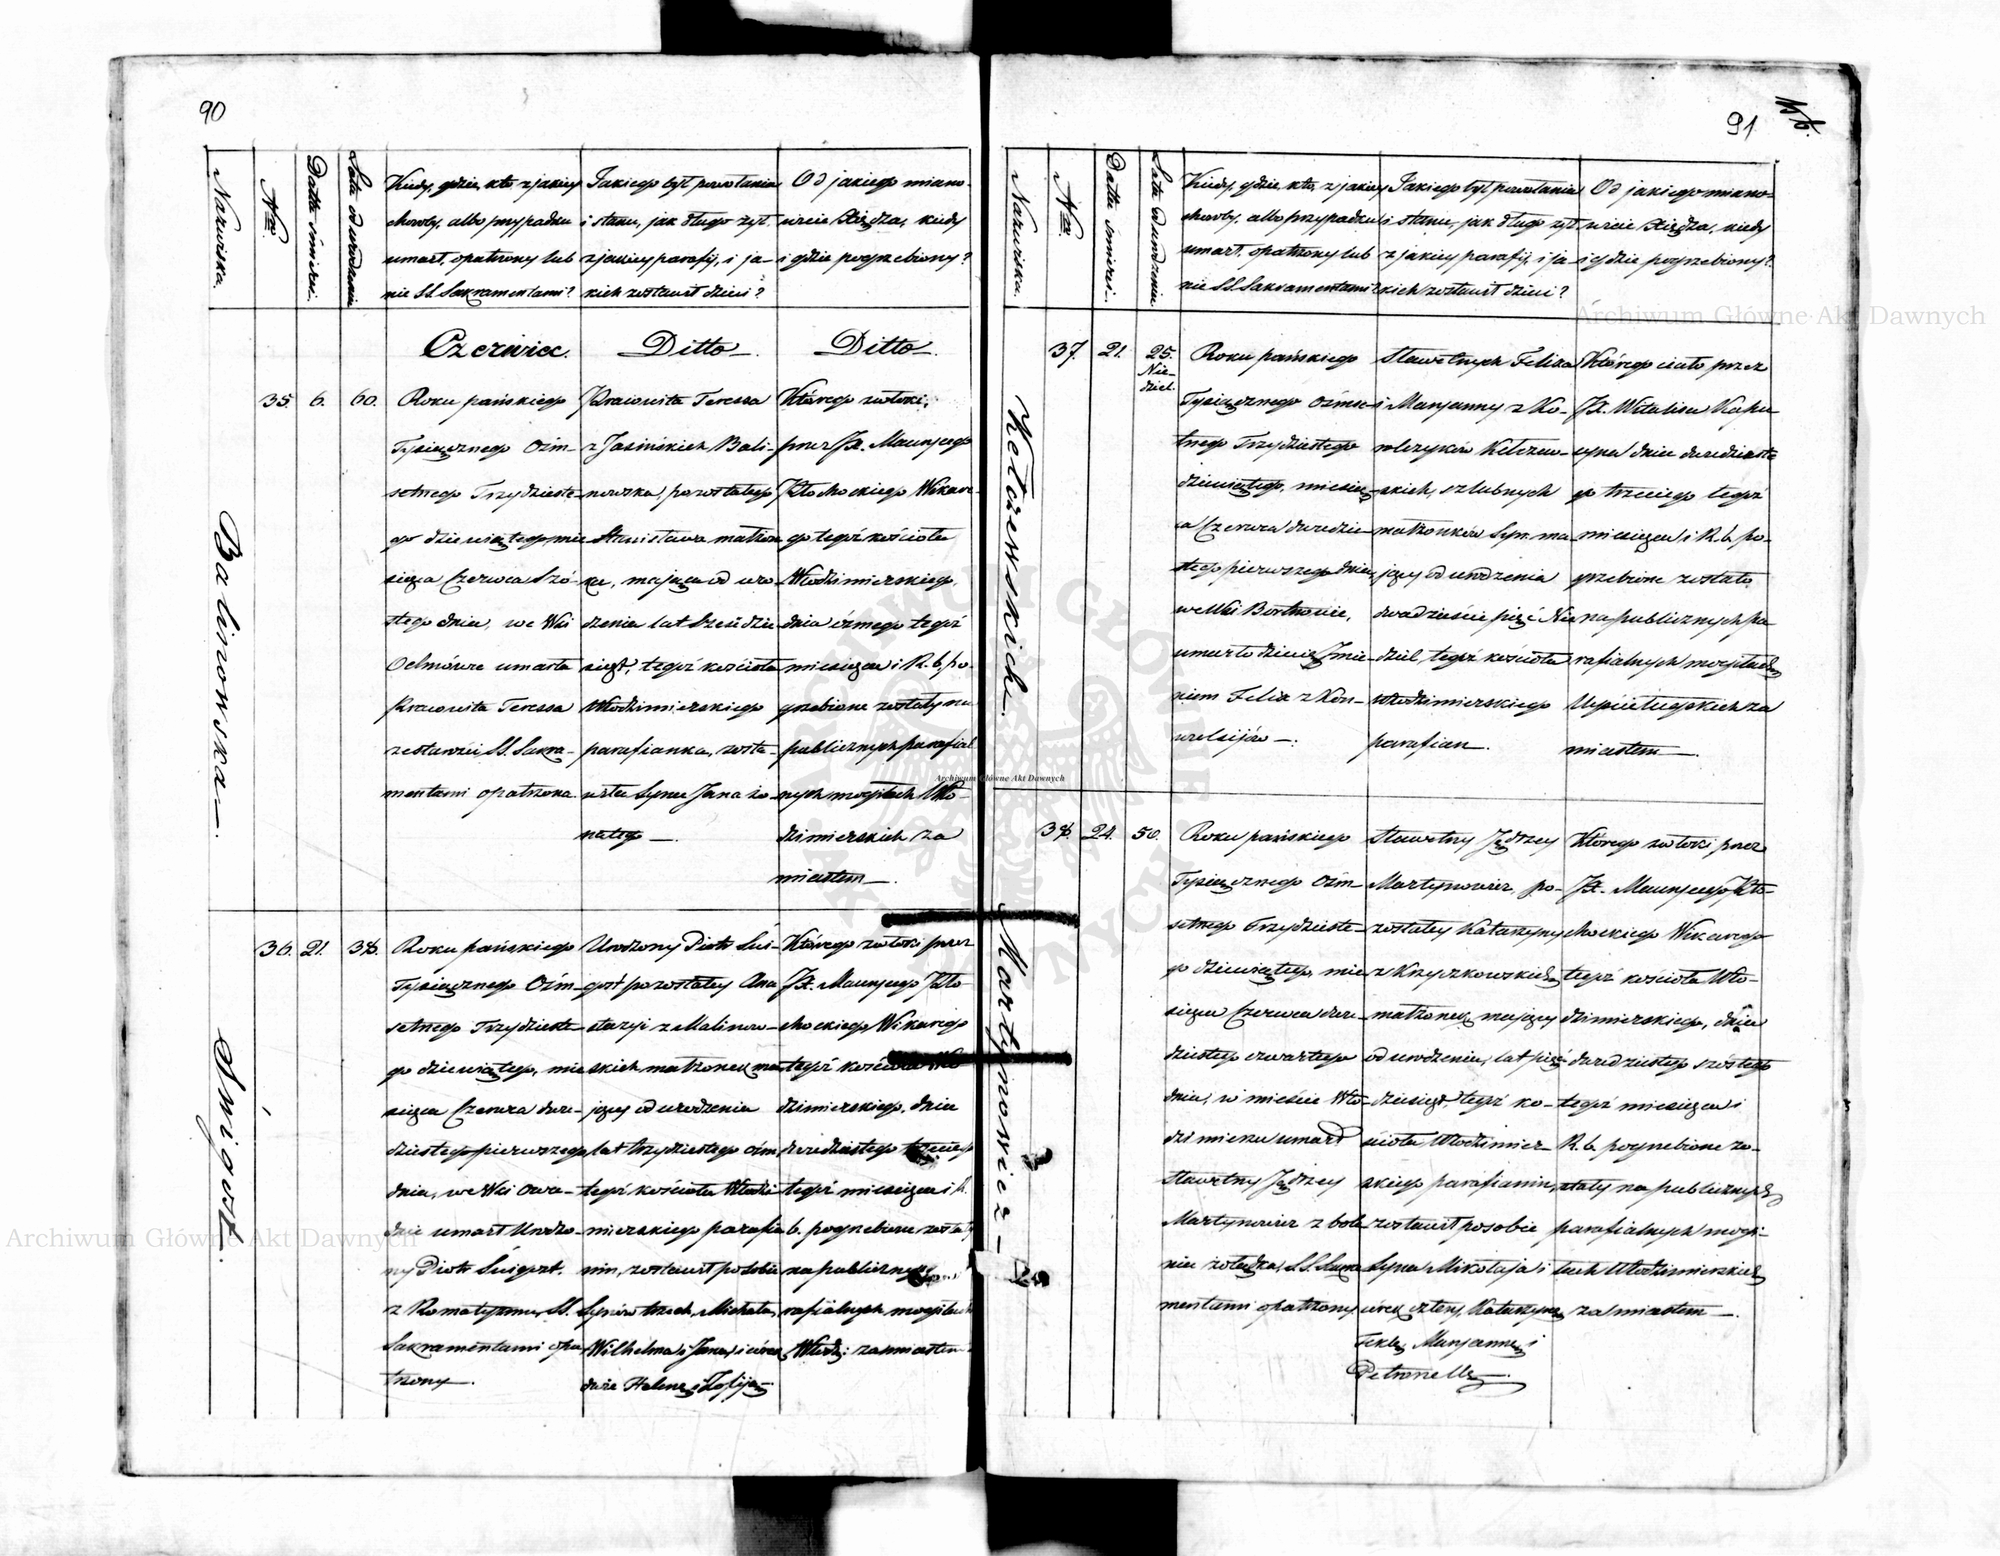 90
Nazwiska.
Nro.
Datta śmierci.
Lata od urodzenia
Kiedy, gdzie, kto z jakiey
choroby, albo przypadku
umarł, opatrzony lub
nie SS. Sakramentami?
Jakiego był powołania
i stanu, jak długo żył,
z jakiey parafij, i ja-
kich zostawił dzieci?
Od jakiego miano-
wicie Xiędza, kiedy
i gdzie pogrzebiony?
Czerwiec.
Ditto.
Ditto.
Balinowska
35. 6. 60.
Roku pańskiego
Tysiącznego Óśm-
setnego Trzydzieste-
go dziewiątego mie-
siąca Czerwca Szó-
stego dnia, we Wsi
umarła
Pracowita Teressa
SS. Sakra-
mentami opatrzona.
Pracowita Teressa
z Jasińskich Bali-
nowska, pozostałego
Stanisława małżon-
ka, mająca od uro-
dzenia lat Sześćdzie-
siąt, tegoż kościoła
Włodzimierskiego
parafianka, zosta-
wiła Syna Jana żo-
natego
Którego zwłoki,
przez JX. Maurycego
Kłochockiego Wikare-
go tegoż kościoła
Włodzimierskiego,
dnia ósmego tegoż
miesiąca i R. b. po-
grzebione zostały na
publicznych parafial-
nych mogiłach Wło-
dzimierskich za
miastem
Śwигost
36. 21. 38.
Roku pańskiego
Tysiącznego Óśm-
setnego Trzydzieste-
go dziewiątego, mie-
siąca Czerwca dwu-
dziestego pierwszego
dnia, we Wsi Owa-
dnie umarł Urodzo-
ny Piotr
z Romatyzmu, SS.
Sakramentami opa-
trzony
Urodzony Piotr
pozostałey Ana-
stazyi z Malinow-
skich małżonek ma-
jący od urodzenia
lat trzydziestego óśm
tegoż kościoła Włodzi-
mierskiego parafia-
nin, zostawił po sobie
Synów trzech, Michała,
Wilhelma i Jana, i córek
dwie Helenę i Zofiją
Którego zwłoki przez
JX. Maurycego Kło-
chockiego Wikarego
tegoż kościoła Wło-
dzimierskiego, dnia
dwudziestego trzeciego
tegoż miesiąca i R.
b. pogrzebione zostały
na publicznych
rafialnych mogiłach
Włodz: za miastem
91
Nazwiska.
Nro.
Datta śmierci.
Lata od urodzenia
Kiedy, gdzie, kto, z jakiey
choroby, albo przypadku
umarł, opatrzony lub
nie SS. Sakramentami?
Jakiego był powołania
i stanu, jak długo żył
z jakiey parafij, i ja-
kich zostawił dzieci?
Od jakiego miano-
wicie Xiędza, kiedy
i gdzie pogrzebiony?
Kełczewskich.
37. 21. 25.
Nie-
dziel.
Roku pańskiego
Tysiącznego Óśmse-
tnego Trzydziestego
dziewiątego, miesią-
ca Czerwca dwudzie-
stego pierwszego dnia,
we Wsi
umarło dziecię Jmie-
niem Felix z Kon-
wulsijów
Sławetnych Felixa
i Maryanny z Ko-
walczyków Kełczew-
skich, szlubnych
małżonków Syn ma-
jący od urodzenia
dwadzieście pięć Nie-
dziel, tegoż kościoła
Włodzimierskiego
parafian.
Którego ciało przez
JX. Witalisa Kapu-
cyna dnia dwudzieste-
go trzeciego tegoż
miesiąca i R. b. po-
grzebione zostało
na publicznych pa-
rafialnych mogiłach
za
miastem
Martynowicz
38. 24. 50.
Roku pańskiego
Tysiącznego Óśm-
setnego Trzydzieste-
go dziewiątego, mie-
siąca Czerwca dwu-
dziestego czwartego
dnia, w mieście Wło-
dzimierzu umarł
Sławetny Jędrzey
Martynowicz z bole-
nia żołądka, SS. Sakra-
mentami opatrzony
Sławetny Jędrzey
Martynowicz, po-
zostałey Katarzyny
z Kryczkowskich
małżonek, mający
od urodzenia, lat pięć-
dziesiąt, tegoż ko-
ścioła Włodzimier-
skiego parafianin,
zostawił po sobie
Syna Mikołaja i
córek cztery, Katarzynę
Teklę, Maryannę i
Petronellę
Którego zwłoki przez
JX. Maurycego Kło-
chockiego Wikarego
tegoż kościoła Wło-
dzimierskiego, dnia
dwudziestego szóstego
tegoż miesiąca i
R. b. pogrzebione zo-
stały na publicznych
parafialnych mogi-
łach Włodzimierskich
za miastem
Archiwum Główne Akt Dawnych
Archiwum Główne Akt Dawnych
Archiwum Główne Akt Dawnych